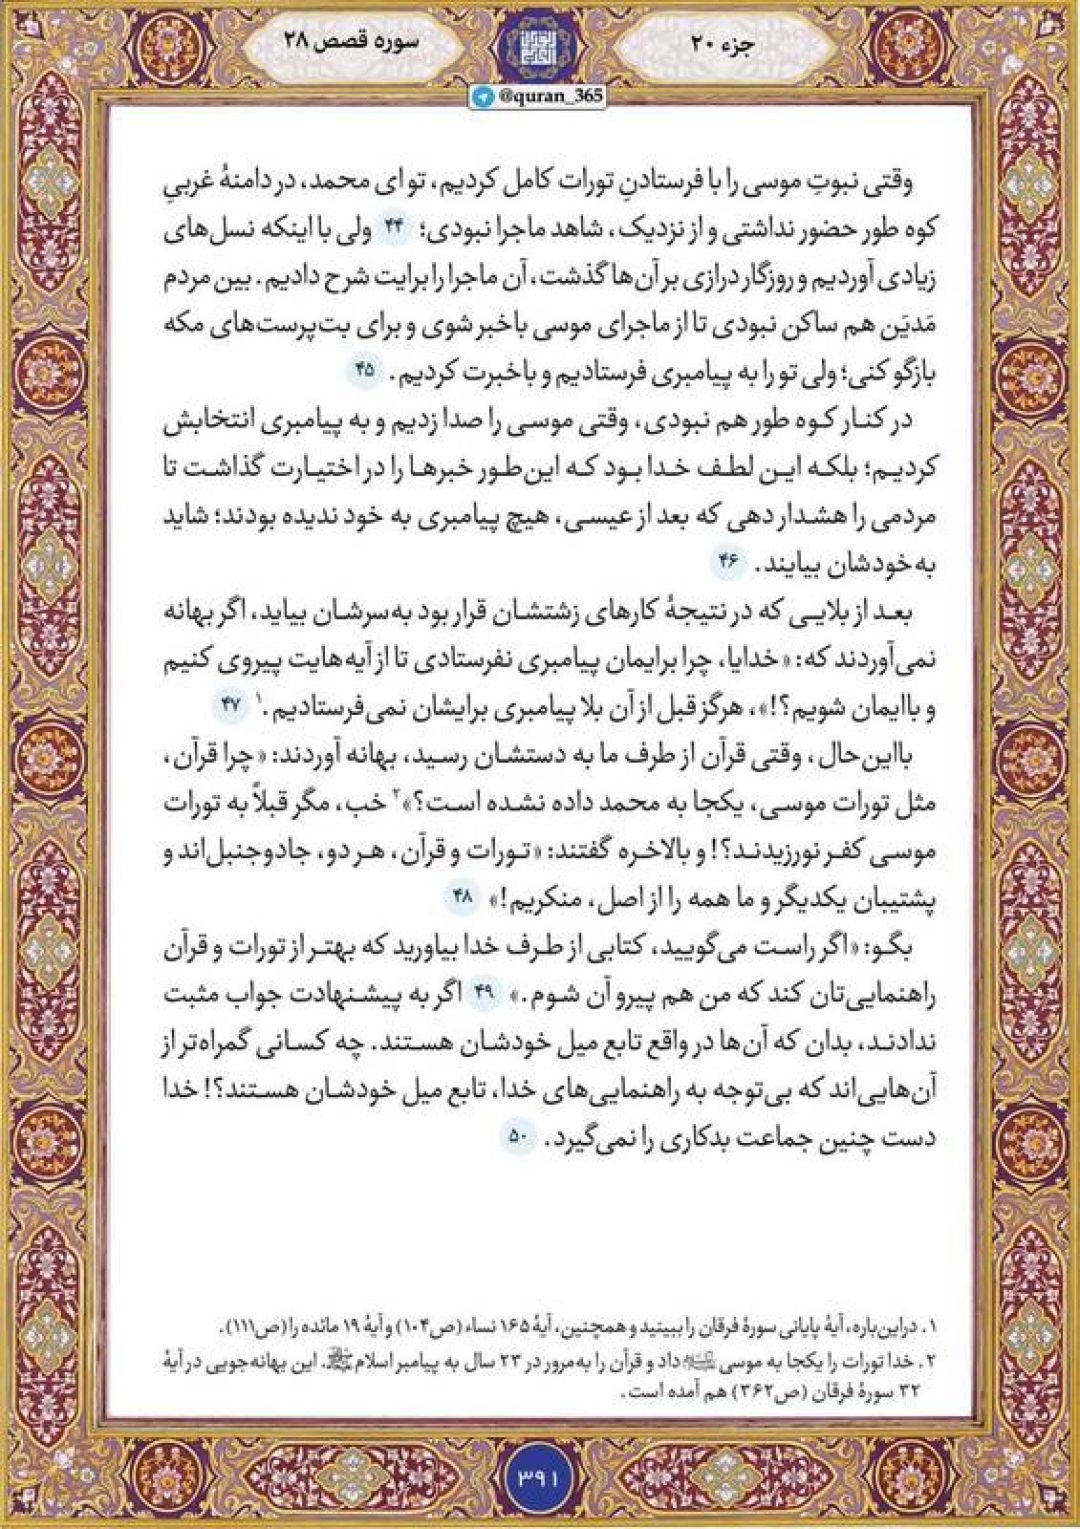 جزء ۲۰
سوره قصص ۲۸
@quran_365
وقتی نبوتِ موسی را با فرستادنِ تورات کامل کردیم، تو ای محمد، در دامنهٔ غربیِ
کوه طور حضور نداشتی و از نزدیک، شاهد ماجرا نبودی؛ ۴۴ ولی با اینکه نسل‌های
زیادی آوردیم و روزگار درازی بر آن‌ها گذشت، آن ماجرا را برایت شرح دادیم. بین مردم
مَدیَن هم ساکن نبودی تا از ماجرای موسی باخبر شوی و برای بت‌پرست‌های مکه
بازگو کنی؛ ولی تو را به پیامبری فرستادیم و باخبرت کردیم. ۴۵
در کنار کوه طور هم نبودی، وقتی موسی را صدا زدیم و به پیامبری انتخابش
کردیم؛ بلکه این لطف خدا بود که این‌طور خبرها را در اختیارت گذاشت تا
مردمی را هشدار دهی که بعد از عیسی، هیچ پیامبری به خود ندیده بودند؛ شاید
به‌خودشان بیایند. ۴۶
بعد از بلایی که در نتیجهٔ کارهای زشتشان قرار بود به‌سرشان بیاید، اگر بهانه
نمی‌آوردند که: «خدایا، چرا برایمان پیامبری نفرستادی تا از آیه‌هایت پیروی کنیم
و باایمان شویم؟!»، هرگز قبل از آن بلا پیامبری برایشان نمی‌فرستادیم.۱ ۴۷
بااین‌حال، وقتی قرآن از طرف ما به دستشان رسید، بهانه آوردند: «چرا قرآن،
مثل تورات موسی، یکجا به محمد داده نشده است؟»۲ خب، مگر قبلاً به تورات
موسی کفر نورزیدند؟! و بالاخره گفتند: «تورات و قرآن، هر دو، جادوجنبل‌اند و
پشتیبان یکدیگر و ما همه را از اصل، منکریم!» ۴۸
بگو: «اگر راست می‌گویید، کتابی از طرف خدا بیاورید که بهتر از تورات و قرآن
راهنمایی‌تان کند که من هم پیرو آن شوم.» ۴۹ اگر به پیشنهادت جواب مثبت
ندادند، بدان که آن‌ها در واقع تابع میل خودشان هستند. چه کسانی گمراه‌تر از
آن‌هایی‌اند که بی‌توجه به راهنمایی‌های خدا، تابع میل خودشان هستند؟! خدا
دست چنین جماعت بدکاری را نمی‌گیرد. ۵۰
۱. دراین‌باره، آیهٔ پایانی سورهٔ فرقان را ببینید و همچنین، آیهٔ ۱۶۵ نساء (ص۱۰۴) و آیهٔ ۱۹ مائده را (ص۱۱۱).
۲. خدا تورات را یکجا به موسی داد و قرآن را به‌مرور در ۲۳ سال به پیامبر اسلام. این بهانه‌جویی در آیهٔ
۳۲ سورهٔ فرقان (ص۳۶۲) هم آمده است.
۳۹۱